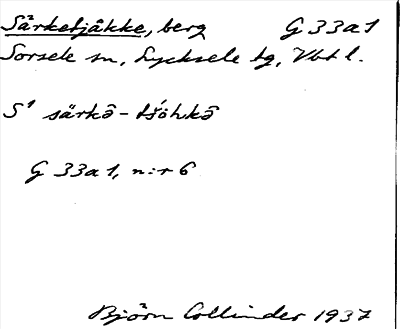 Särketjåkke, berg G 33a1
Sorsele sn, Lycksele lg, Vbtl.
S¹ särkē - tšöhkē
G 33a1, n:r 6
Björn Collinder 1937